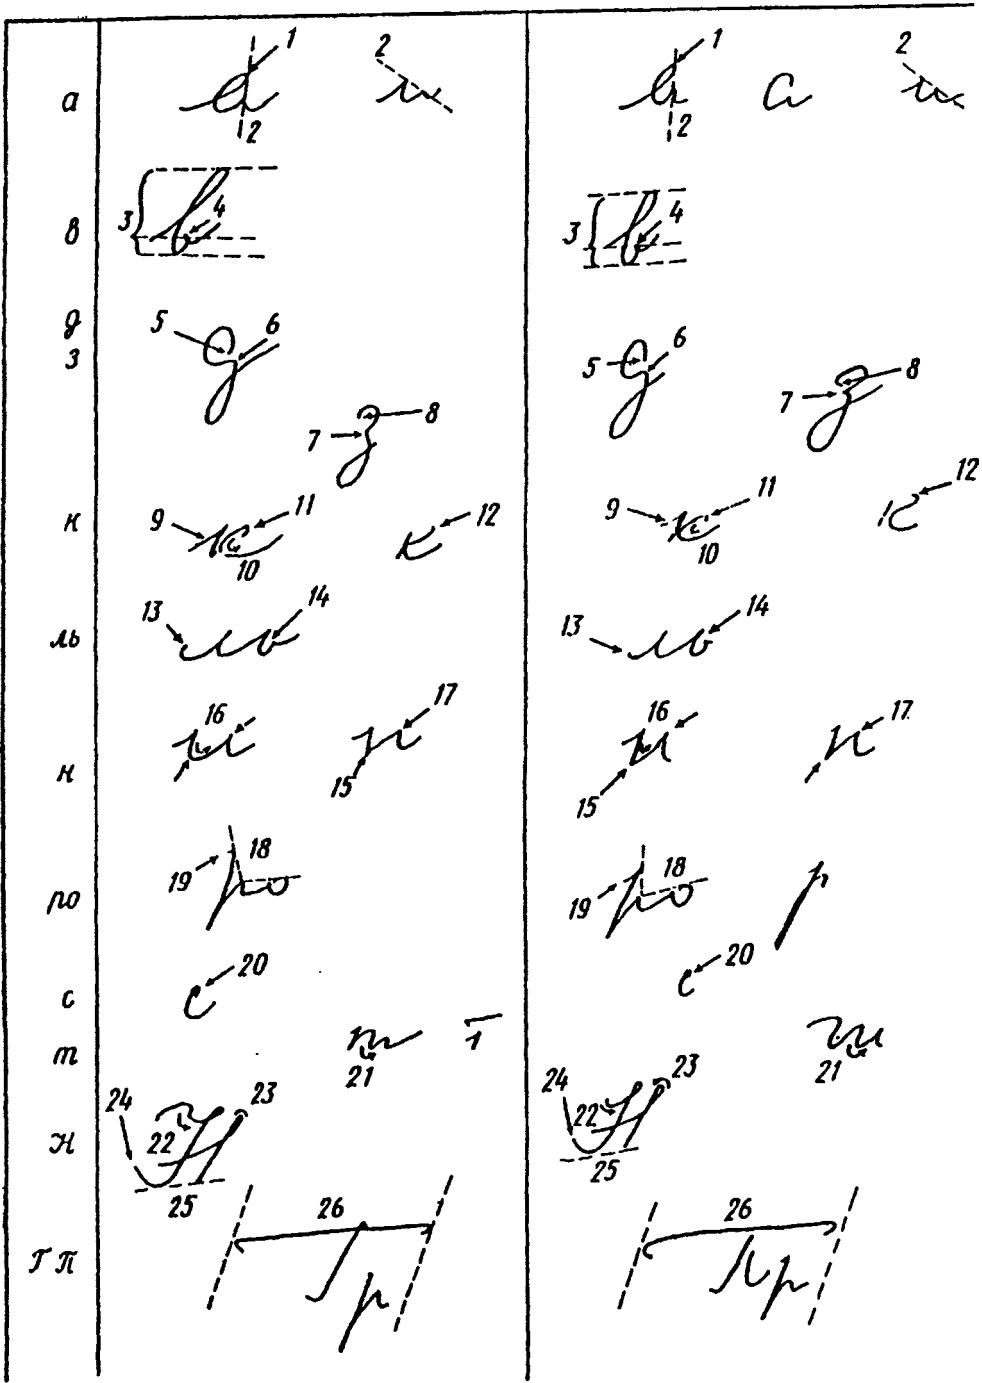 а 1 2 2 1 2 2
в 3 4 3 4
д 5 6 5 6
з 7 8 7 8
к 9 10 11 12 9 10 11 12
ль 13 14 13 14
н 15 16 17 15 16 17
ро 18 19 18 19
с 20 20
т 21 21
Н 22 23 24 25 22 23 24 25
Г П 26 26